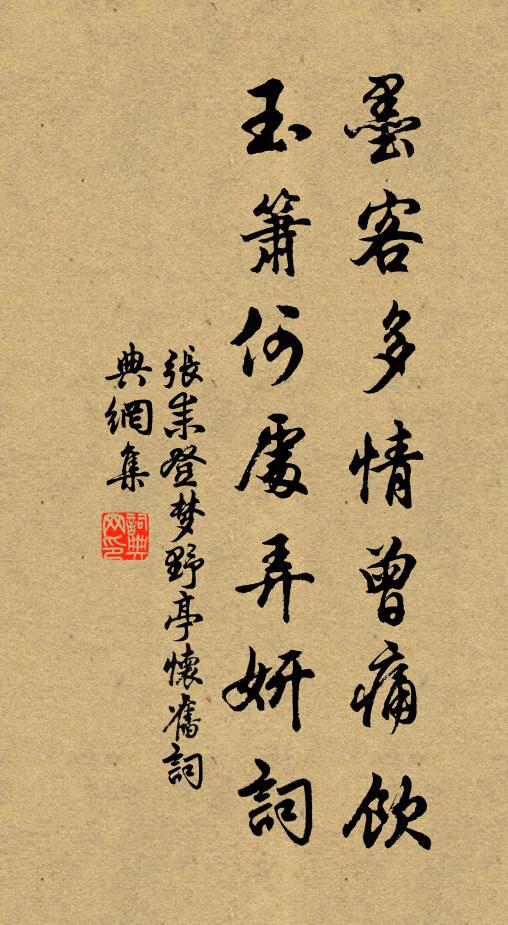 墨客多情曾痛飲
玉簫何處弄妍詞
張耒登梦野亭懷舊詞
典網集
詞典
网印